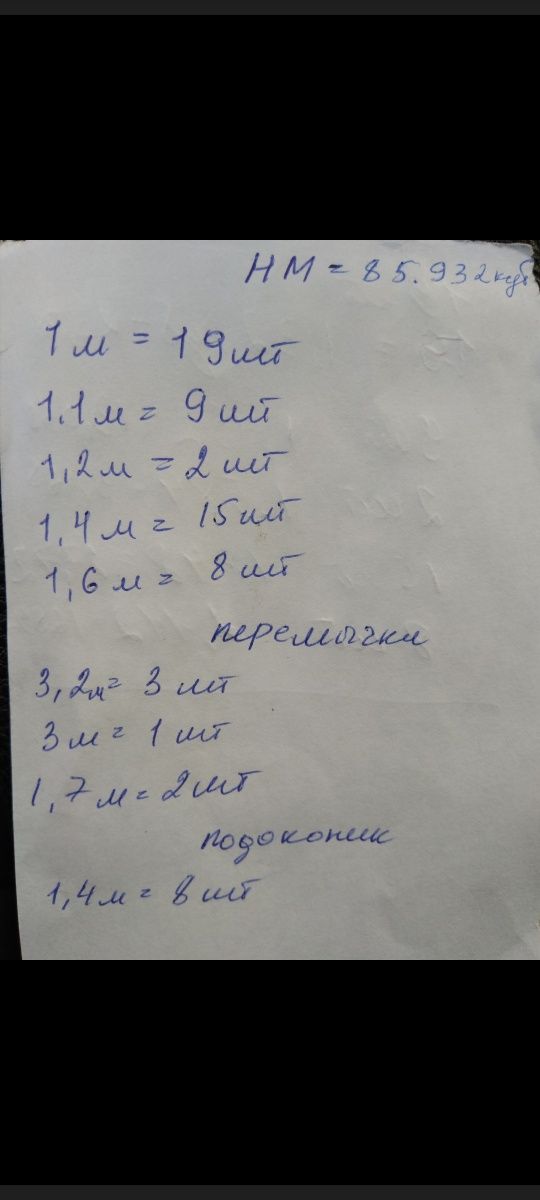 НМ = 85.932куб
1м = 19шт
1.1м = 9шт
1,2м = 2шт
1,4м = 15шт
1,6м = 8шт
перемычки
3,2м = 3шт
3м = 1шт
1,7м = 2шт
подоконик
1,4м = 8шт